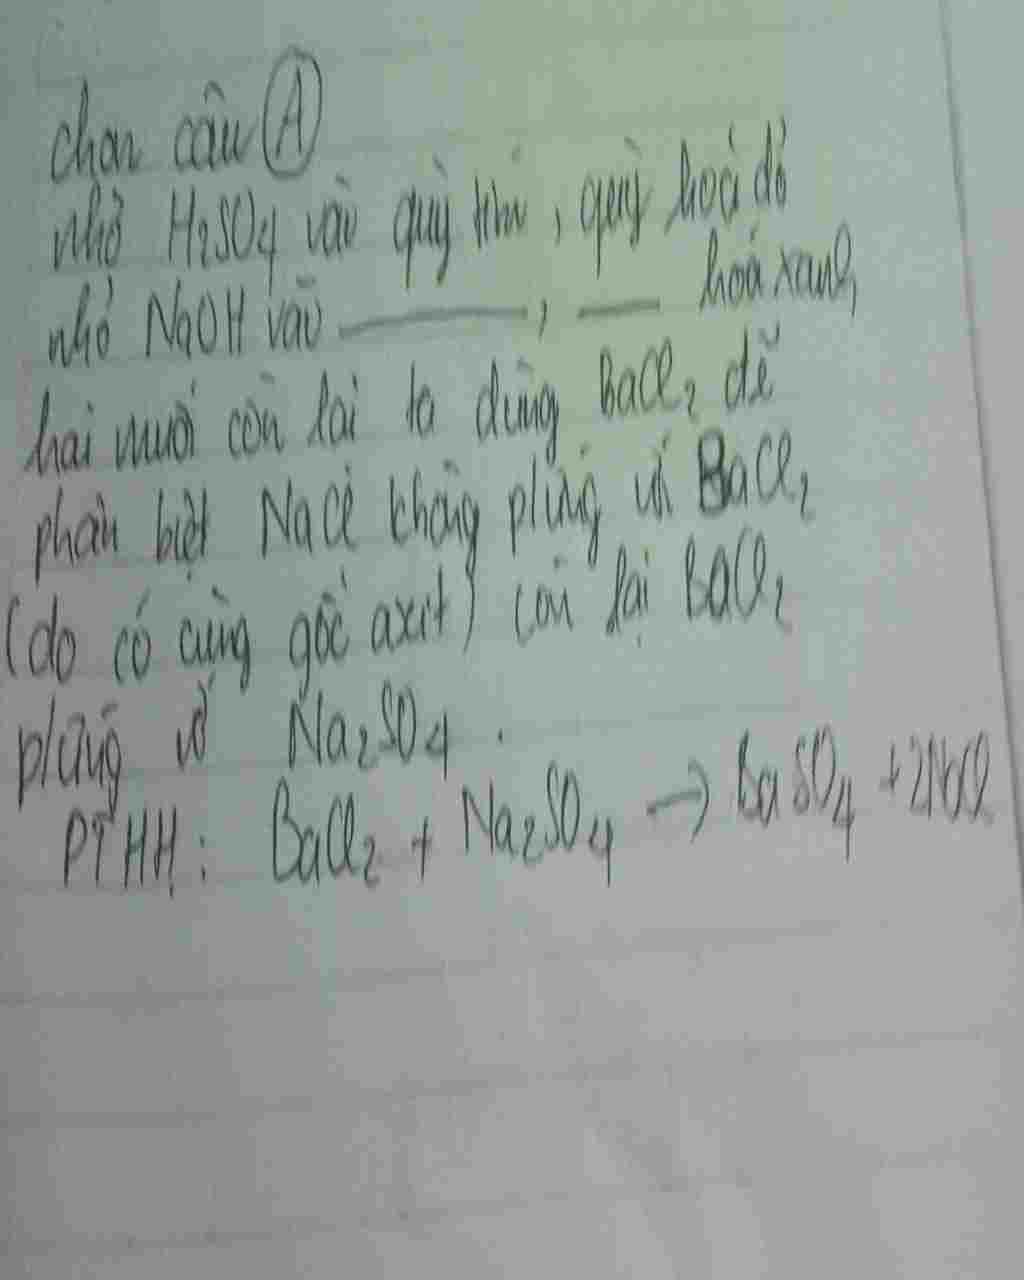 chọn câu A
nhỏ H₂SO₄ vào quỳ tím, quỳ hoá đỏ
nhỏ NaOH vào ———, — hoá xanh,
hai muối còn lại ta dùng BaCl₂ để
phân biệt NaCl không pứng với BaCl₂
(do có cùng gốc axit) còn lại BaCl₂
pứng với Na₂SO₄.
PTHH: BaCl₂ + Na₂SO₄ → BaSO₄ + 2NaCl